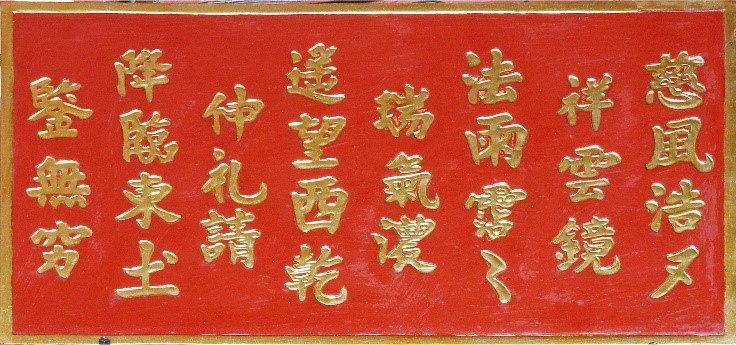 慈凬浩々
祥雲鏡
法雨〻
瑞氣濃
遙望西乾
伸礼請
降臨東土
鑒無穷